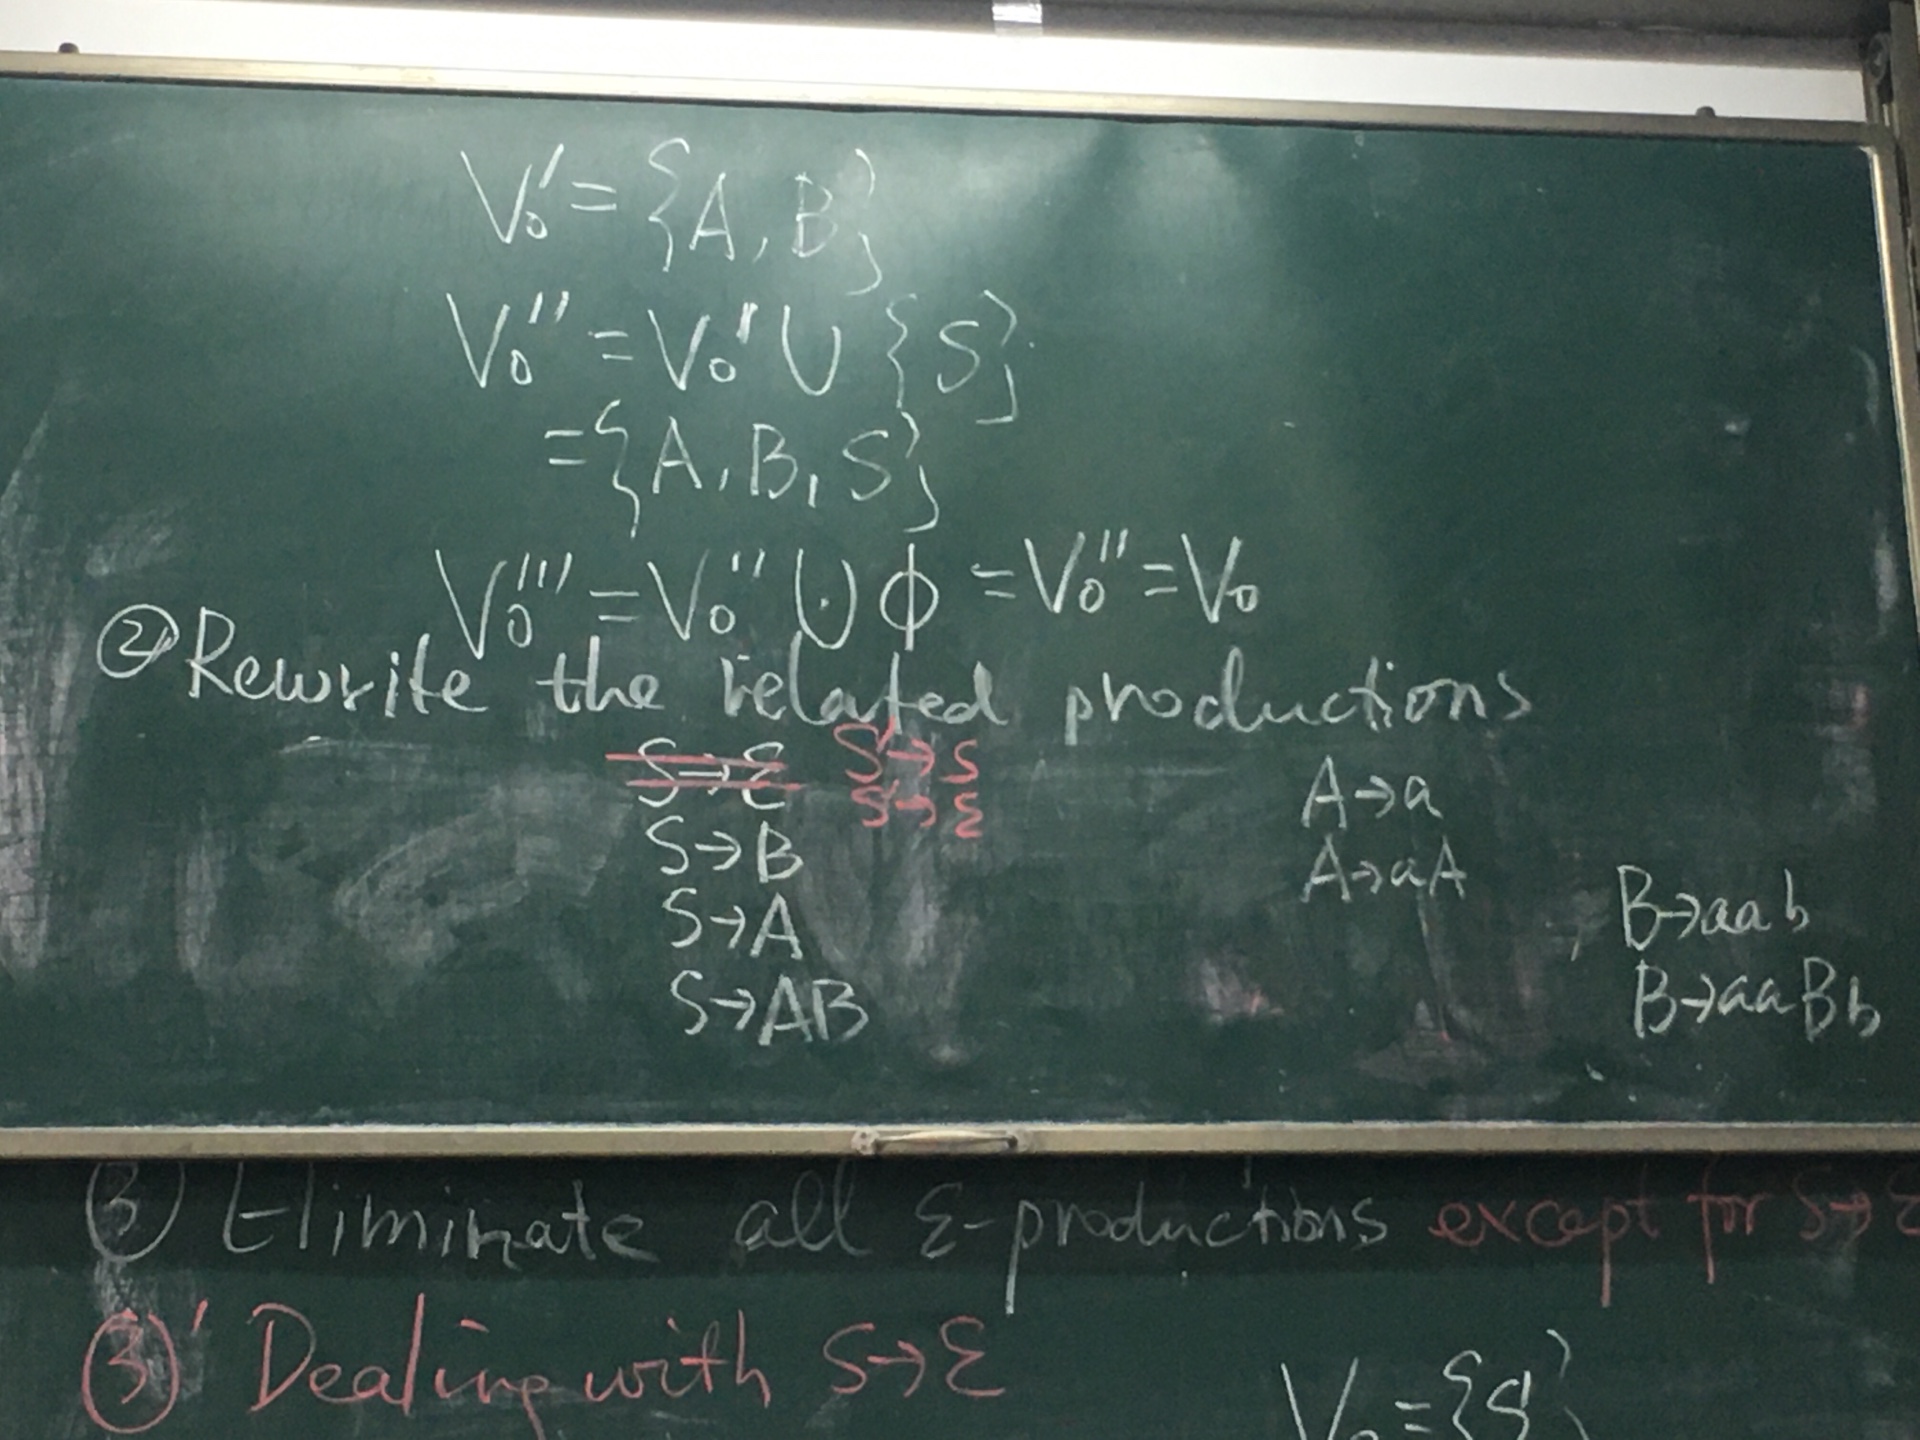 V₀′ = {A, B}
V₀″ = V₀′ ∪ {S}
= {A, B, S}
V₀‴ = V₀″ ∪ ϕ = V₀″ = V₀
② Rewrite the related productions
S→ε S′→S
S→ε S′→ε
S→B
S→A
S→AB
A→a
A→aA
B→aab
B→aaBb
③ Eliminate all ε-productions except for S→ε
③′ Dealing with S→ε
V₀={S′}